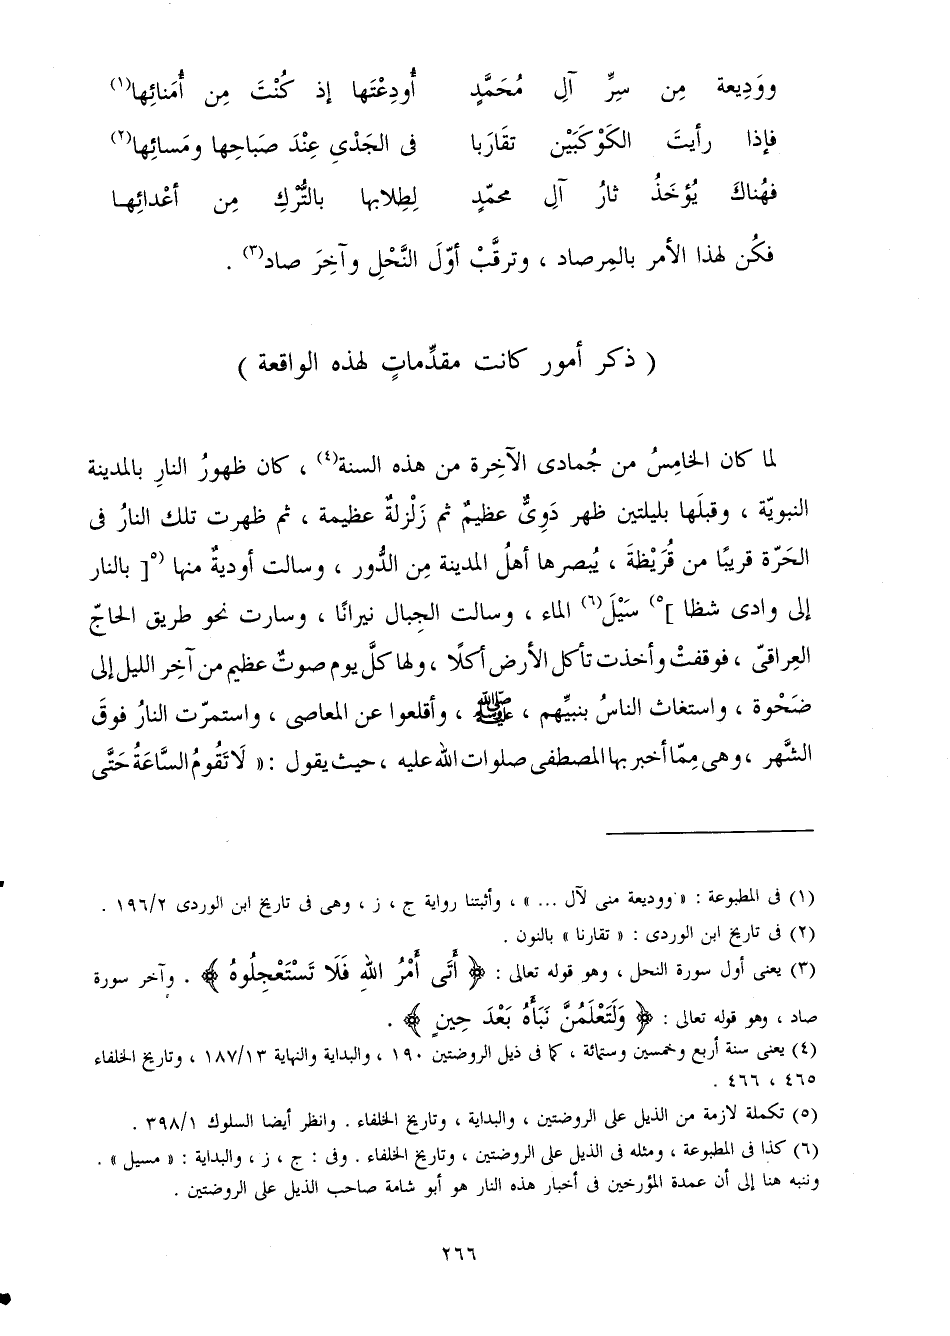 ووَدِيعة مِن سِرِّ آلِ مُحَمَّدٍ أُودِعْتَها إذ كُنْتَ مِن أُمَنائِها(١)
فإذا رأيتَ الكَوْكَبَيْنِ تقَارَبا فى الجَدْىِ عِنْدَ صَباحِها ومَسائِها(٢)
فهُناكَ يُؤخَذُ ثارُ آلِ محمّدٍ لِطِلابها بالتُّرْكِ مِن أعْدائِهـا
فكُن لهذا الأمر بالمِرصاد ، وترقَّبْ أوّلَ النَّحْلِ وآخِرَ صاد(٣) .
( ذكر أمور كانت مقدِّماتٍ لهذه الواقعة )
لما كان الخامِسُ من جُمادى الآخِرة من هذه السنة(٤) ، كان ظهورُ النارِ بالمدينة
النبويّة ، وقبلَها بليلتين ظهر دَوِىٌّ عظيمٌ ثم زَلْزلةٌ عظيمة ، ثم ظهرت تلك النارُ فى
الحَرّة قريبًا من قُرَيْظةَ ، يُبصرها أهلُ المدينة مِن الدُّور ، وسالت أوديةٌ منها (٥[ بالنار
إلى وادى شظا ]٥) سَيْلَ(٦) الماء ، وسالت الجِبال نيرانًا ، وسارت نحو طريق الحاجّ
العِراقىّ ، فوقفتْ وأخذت تأكل الأرض أكلًا ، ولها كلَّ يوم صوتٌ عظيم من آخِر الليل إلى
ضَحْوة ، واستغاث الناسُ بنبيِّهم ، ﷺ ، وأقلعوا عن المعاصى ، واستمرّت النارُ فوقَ
الشَّهر ، وهى مِمّا أخبر بها المصطفى صلوات الله عليه ، حيث يقول : « لَا تَقُومُ السَّاعَةُ حَتَّى
(١) فى المطبوعة : « ووديعة منى لآل ... » ، وأثبتنا رواية ج ، ز ، وهى فى تاريخ ابن الوردى ١٩٦/٢ .
(٢) فى تاريخ ابن الوردى : « تقارنا » بالنون .
(٣) يعنى أول سورة النحل ، وهو قوله تعالى : ﴿ أَتَى أَمْرُ اللهِ فَلَا تَسْتَعْجِلُوهُ ﴾ . وآخر سورة
صاد ، وهو قوله تعالى : ﴿ وَلَتَعْلَمُنَّ نَبَأَهُ بَعْدَ حِينٍ ﴾ .
(٤) يعنى سنة أربع وخمسين وستمائة ، كما فى ذيل الروضتين ١٩٠ ، والبداية والنهاية ١٨٧/١٣ ، وتاريخ الخلفاء
٤٦٥ ، ٤٦٦ .
(٥) تكملة لازمة من الذيل على الروضتين ، والبداية ، وتاريخ الخلفاء . وانظر أيضا السلوك ٣٩٨/١ .
(٦) كذا فى المطبوعة ، ومثله فى الذيل على الروضتين ، وتاريخ الخلفاء . وفى : ج ، ز ، والبداية : « مسيل » .
وننبه هنا إلى أن عمدة المؤرخين فى أخبار هذه النار هو أبو شامة صاحب الذيل على الروضتين .
٢٦٦